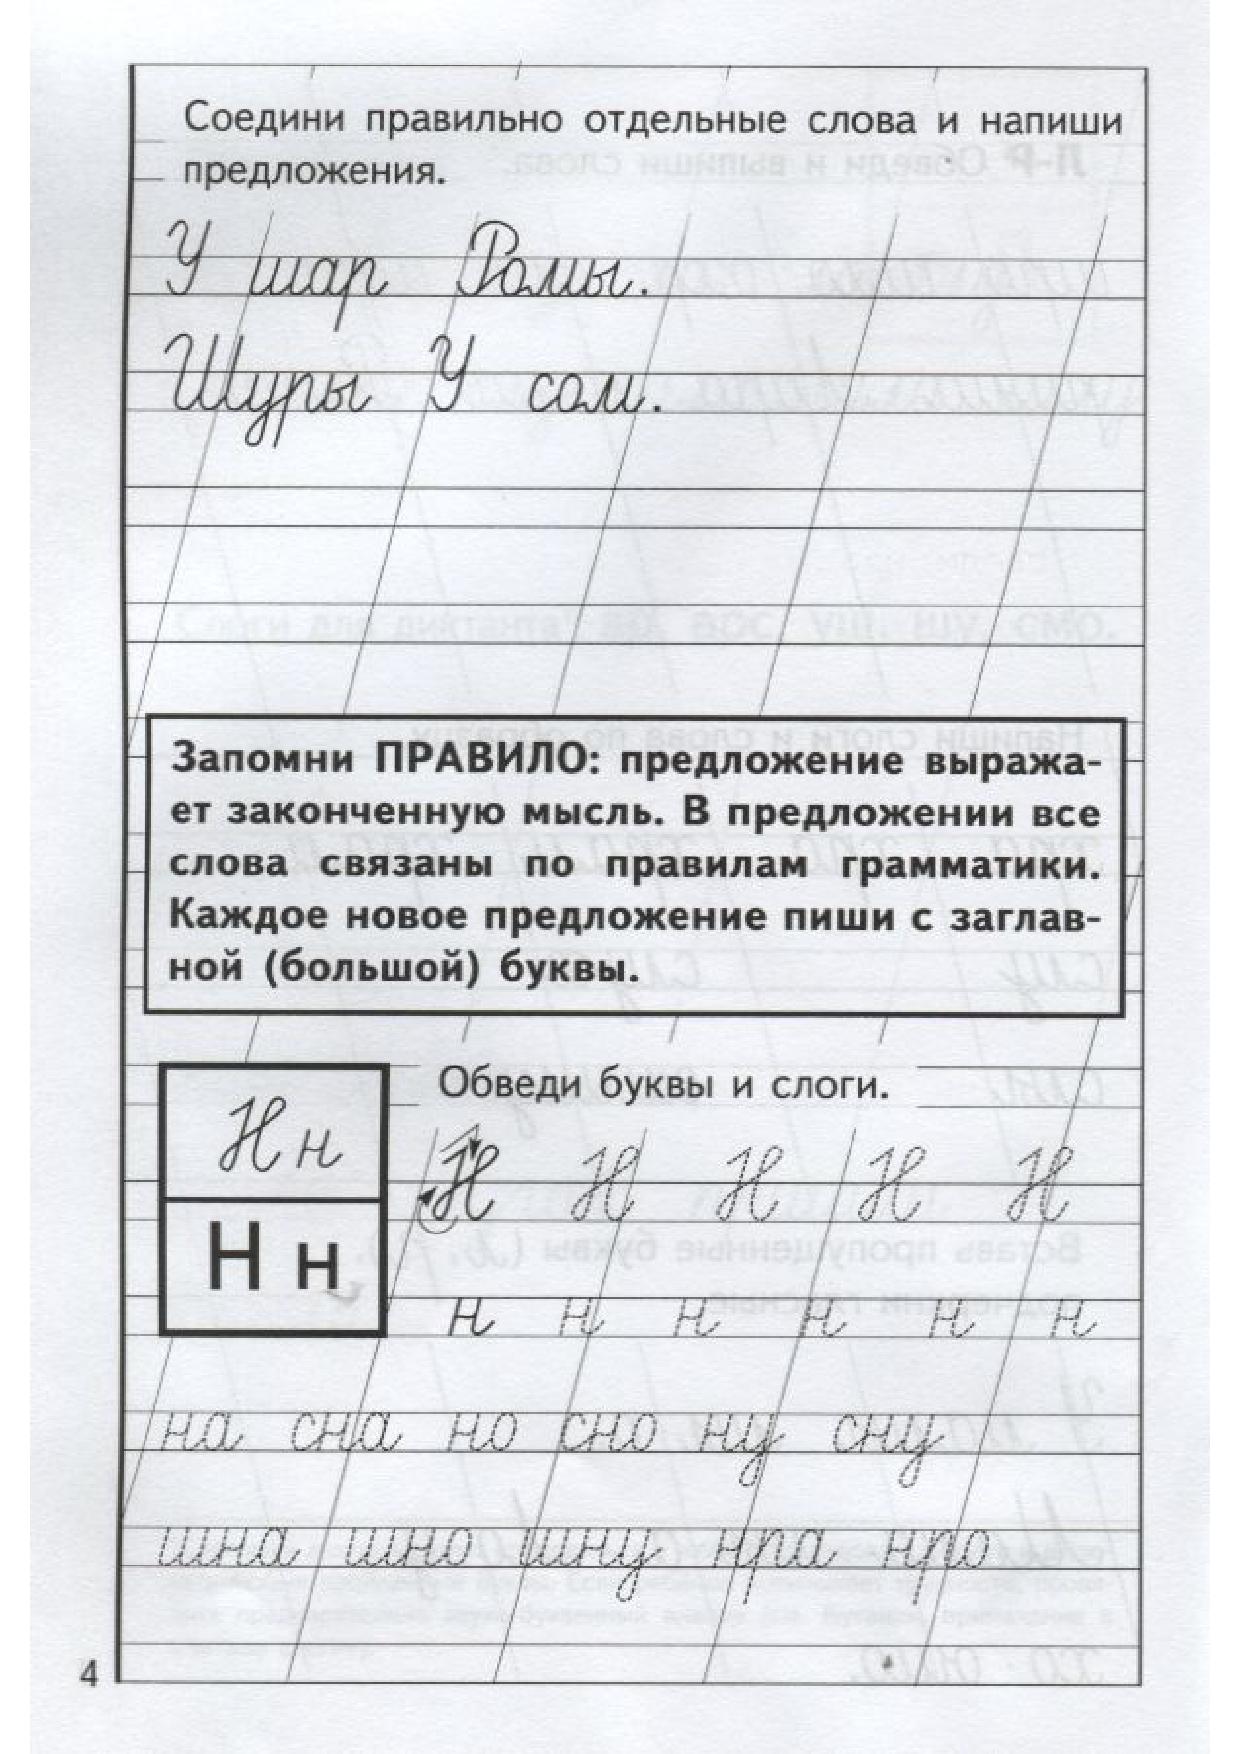 Соедини правильно отдельные слова и напиши
предложения.
У шар Ромы.
Шуры У сом.
Запомни ПРАВИЛО: предложение выража-
ет законченную мысль. В предложении все
слова связаны по правилам грамматики.
Каждое новое предложение пиши с заглав-
ной (большой) буквы.
Н н
Н н
Обведи буквы и слоги.
Н Н Н Н Н
н н н н н н
на сна но сно ну сну
шна шно шну нра нро
4